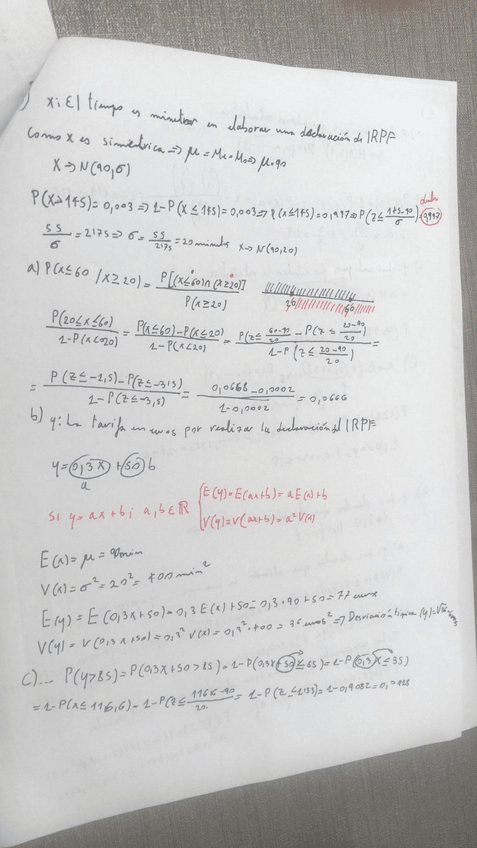 X: El tiempo es minutos en elaborar una declaración de IRPF
Como X es simétrica => μ = Me = Mo => μ = 90
X → N(90, σ)
P(X>145) = 0,003 => 1-P(X≤145) = 0,003 => P(X≤145) = 0,997 => P(Z ≤ (145-90)/σ) = 0,997
55/σ = 2,75 => σ = 55/2,75 = 20 minutos X → N(90,20)
a) P(X≤60 / X≥20) = P[(X≤60)∩(X≥20)] / P(X≥20)
20 60
P(20≤X≤60) / 1-P(X<20) = P(X≤60)-P(X≤20) / 1-P(X<20) = P(Z≤ (60-90)/20) - P(Z ≤ (20-90)/20) / 1-P(Z≤ (20-90)/20) =
= P(Z≤-1,5)-P(Z≤-3,5) / 1-P(Z≤-3,5) = 0,0668-0,0002 / 1-0,0002 = 0,0666
b) Y: La tarifa en euros por realizar la declaración del IRPF
Y = 0,3X + 50 b
a
Si Y = ax+b; a,b ∈ ℝ
E(Y) = E(ax+b) = a E(x)+b
V(Y) = V(ax+b) = a² V(x)
E(x) = μ = 90min
V(x) = σ² = 20² = 400 min²
E(Y) = E(0,3X+50) = 0,3 E(X)+50 = 0,3·90+50 = 77 euros
V(Y) = V(0,3X+50) = 0,3² V(X) = 0,3²·400 = 36 euros² => Desviación típica (Y) =
C) P(Y>85) = P(0,3X+50>85) = 1-P(0,3X+50≤85) = 1-P(0,3X≤35)
= 1-P(X≤116,6) = 1-P(Z≤ (116,6-90)/20 = 1-P(Z≤1,33) = 1-0,9082 =